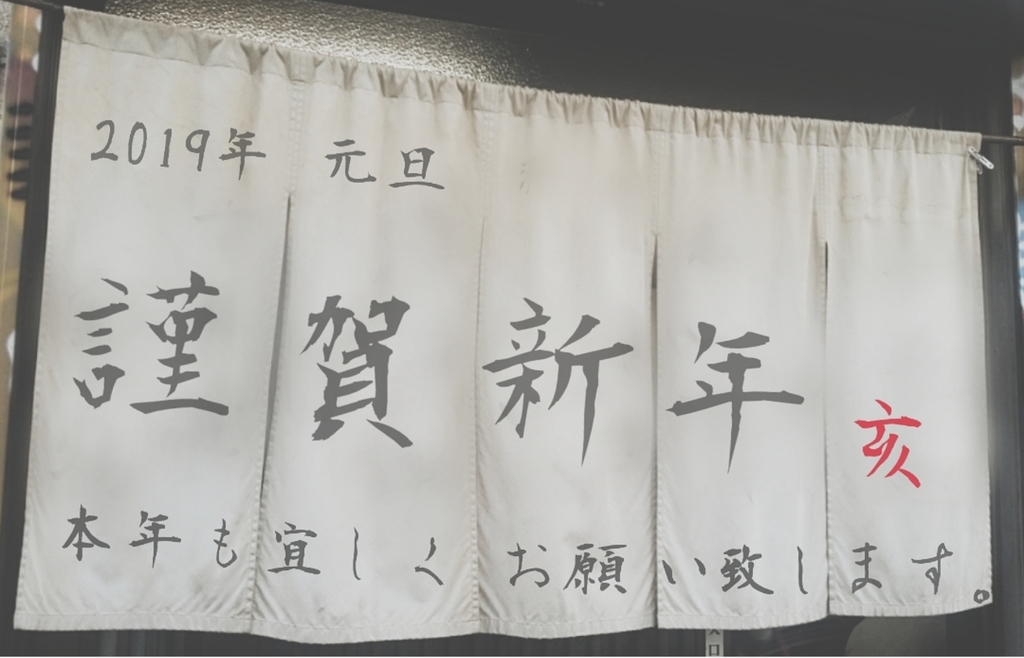 2019年 元旦
謹賀新年
亥
本年も宜しくお願い致します。
入口